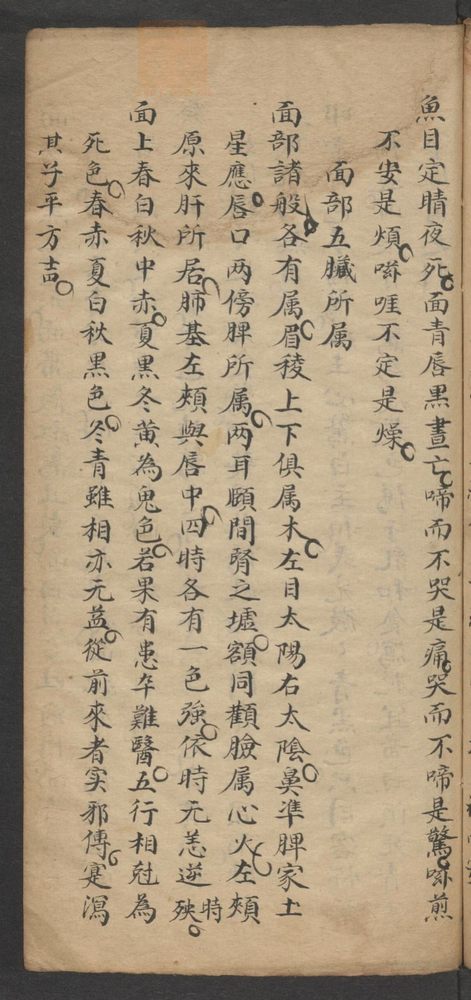 魚目定睛夜死面青唇黑晝亡啼而不哭是痛哭而不啼是驚啼煎
不安是煩啼哇不定是燥
面部五臟所属
面部諸般各有属眉稜上下俱属木左目太陽右太陰鼻準脾家土
星應唇口两傍脾所属两耳頤間腎之墟額同顴臉属心火左頰
原來肝所居肺基左頰與唇中四時各有一色強依時无恙逆時殃
面上春白秋中赤夏黑冬黄為鬼色若果有患卒難醫五行相尅為
死色春赤夏白秋黑色冬青雖相亦无益從前來者实邪傳寔瀉
其子平方吉